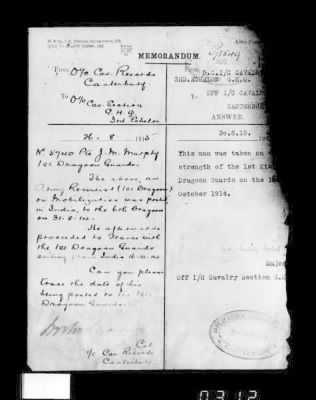 MEMORANDUM.
From O/c Cav. Records
Canterbury
To O/c
Cav. Section
G.H.Q.
3rd Echelon
26. 8. 1915
No 5740 Pte J. M. Murphy
1st Dragoon Guards.
The above, an
Army Reservist (1st Dragoons)
on Mobilization was posted
in India, to the 6th Dragoons
on 31. 8. 14.
He afterwards
proceeded to France with
the 1st Dragoon Guards
sailing from India 16.10.14
Can you please
trace the date of his
being posted to the 1st
Dragoon Guards.
Col
o/c Cav. Records
Canterbury
O.I/C CAVALRY
3RD. ECHELON G.H.Q.
To
OFF I/C CAVALRY
CANTERBU
ANSWER.
30.8.15.
This man was taken on
strength of the 1st Kin
Dragoon Guards on the
October 1914.
Major
Off I/C Cavalry Section G.H.
0312